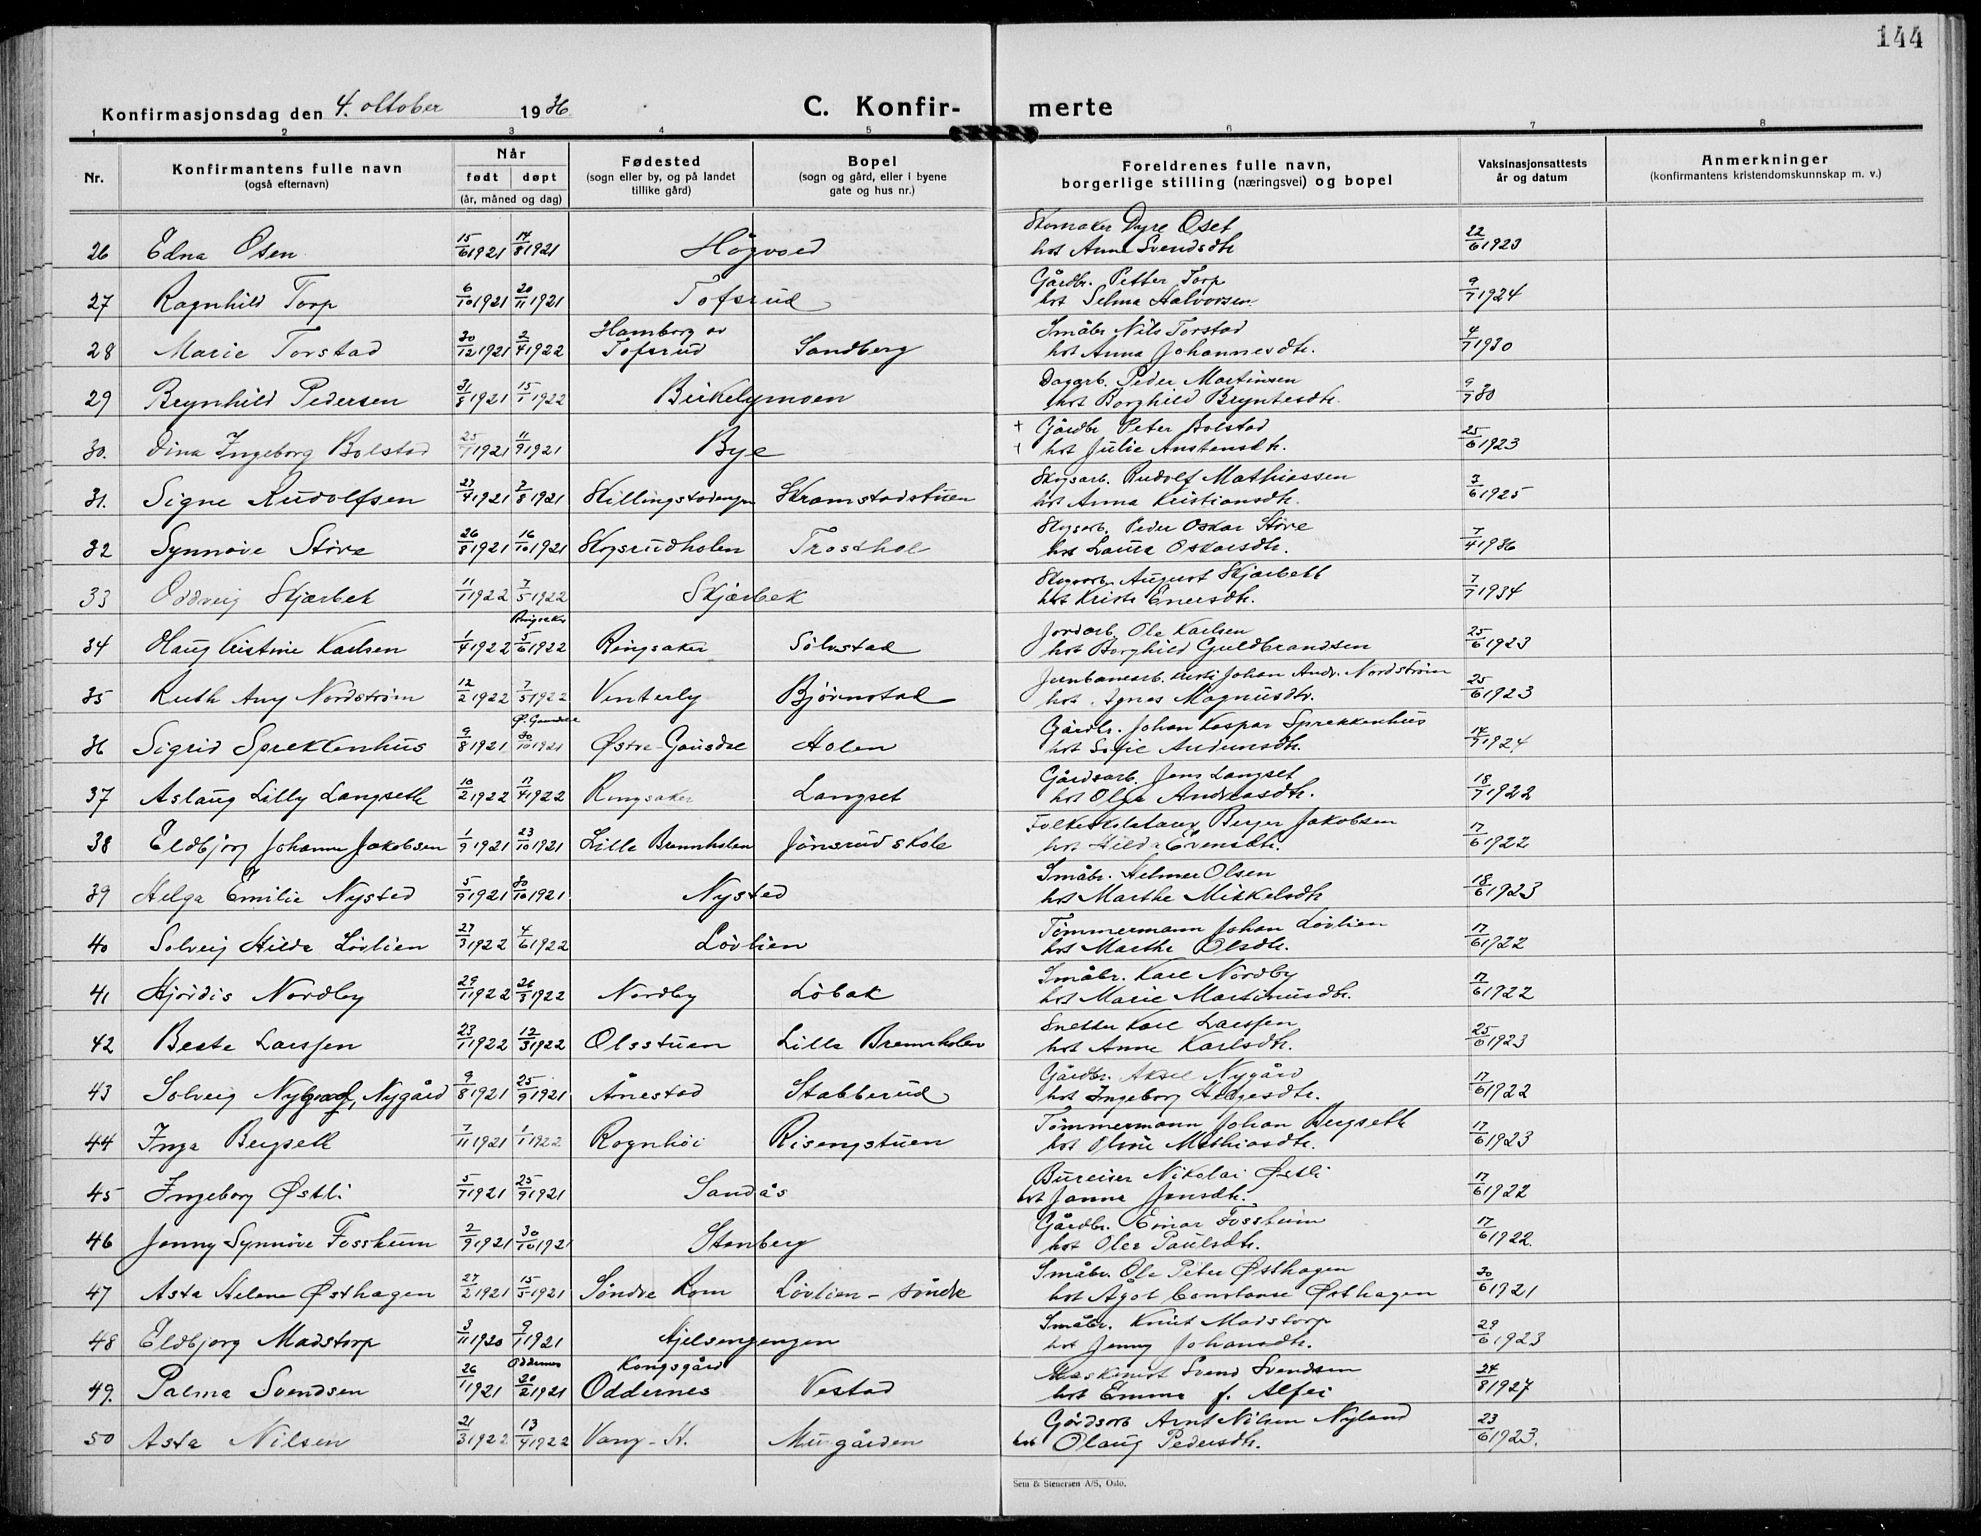 144
Konfirmasjonsdag den 4. oktober 1936
C. Konfirmerte
1 2 3 4 5 6 7 8
Nr. Konfirmantens fulle navn (også efternavn) Når født døpt (år, måned og dag) Fødested (sogn eller by, og på landet tillike gård) Bopel (sogn og gård, eller i byene gate og hus nr.) Foreldrenes fulle navn, borgerlige stilling (næringsvei) og bopel Vaksinasjonsattests år og datum Anmerkninger (konfirmantens kristendomskunnskap m. v.)
26 Edna Osen 15/6 1921 14/8 1921 Høgvold Skomaker Dyre Oset hst Anna Svendsdtr. 22/6 1923
27 Ragnhild Torp 6/10 1921 20/11 1921 Tofsrud Gårdbr. Petter Torp hst Selma Halvorsen 9/7 1924
28 Marie Torstad 30/12 1921 2/4 1922 Hamborg av Tofsrud Sandberg Småbr. Nils Torstad hst Anna Johannesdtr. 4/7 1930
29 Brynhild Pedersen 31/8 1921 15/1 1922 Birkelymoen Dagarb. Peder Martinsen hst Borghild Bryntesdtr. 9/7 30
30. Dina Ingeborg Bolstad 25/7 1921 11/9 1921 Bye + Gårdbr Peter Bolstad + hst Julie Austensdtr. 25/6 1923
31. Signe Rudolfsen 27/4 1921 7/8 1921 Skillingstadengen Skramstadstuen Skogsarb. Rudolf Mathiassen hst Anna Kristiansdtr. 3/6 1925
32 Synnøve Støre 26/8 1921 16/10 1921 Skogsrudholen Trosthol Skogsarb. Peder Oskar Støre hst Laura Oskarsdtr. 7/4 1936
33 Oddveig Skjærbek 11/1 1922 7/5 1922 Skjærbek Skogsarb. August Skjærbekk hst Kristi Enersdtr. 7/7 1934
34 Haug Kristine Karlsen 1/4 1922 Ringsaker 5/6 1922 Ringsaker Sølvstad Jordarb. Ole Karlsen hst Borghild Guldbrandsen 25/6 1923
35 Ruth Any Nordstrøm 12/2 1922 7/5 1922 Vinterly Bjørnstad Jernbanearb. Johan Andr. Nordstrøm hst. Agnes Magnusdtr. 25/6 1923
36 Sigrid Sprekkenhus 9/8 1921 Ø. Gausdal 30/10 1921 Østre-Gausdal Holen Gårdbr. Johan Kaspar Sprekkenhus hst Sofie Andersdtr. 14/7 1924
37 Aslaug Lilly Langseth 10/2 1922 17/4 1922 Ringsaker Langset Gårdsarb. Jens Langset hst Olga Andreasdtr. 18/7 1922
38 Eldbjørg Johanne Jakobsen 1/9 1921 23/10 1921 Lille Brennholen Jønsrud skole Folkeskolelærer Birger Jakobsen hst Hilda Evensdtr. 17/6 1922
39 Helga Emilie Nysted 5/9 1921 30/10 1921. Nysted Småbr. Helmer Olsen hst Marthe Mikkelsdtr 18/6 1923
40 Solveig Hilda Løvlien 27/3 1922 4/6 1922 Løvlien Tømmermann Johan Løvlien hst Marthe Olsdtr. 17/6 1922
41 Hjørdis Nordby 29/1 1922 26/3 1922 Nordby Løbak Småbr. Karl Nordby hst Marie Martinusdtr. 17/6 1922
42 Beate Larssen 23/1 1922 12/3 1922 Olsstuen Lille Brennholen Snekker Karl Larssen hst Anne Karlsdtr. 25/6 1923
43 Solveig Nygård 9/8 1921 25/9 1921 Ånestad Stabberud Gårdbr. Aksel Nygård hst Ingeborg Helgesdtr. 17/6 1922
44 Inga Bergseth 7/11 1921 1/1 1922 Rognhøi Risengstuen Tømmermann Johan Bergseth hst Oline Mathiasdtr. 17/6 1923
45 Ingeborg Østli 5/7 1921 25/9 1921 Sandås Bureiser Nikolai Østli hst Janna Jensdtr. 17/6 1922
46 Jenny Synnøve Fosshum 2/9 1921 30/10 1921 Stenberg Gårdbr. Einar Fosshum hst Olea Paulsdtr. 17/6 1922.
47 Asta Helene Østhagen 27/2 1921 15/5 1921 Søndre Rom Løvlien - søndre Småbr. Ole Peter Østhagen hst Ågot Constanse Østhagen 30/6 1921
48 Eldbjørg Madstorp 3/11 1920 9/1 1921 Hjelsengengen Småbr. Knut Madstorp hst Jenny Johansdtr. 29/6 1923
49. Palma Svendsen 26/1 1921 Oddernes 20/2 1921 Kongsgård Oddernes Vestad Maskinist Svend Svendsen hst Emma f. Alfei 24/8 1927
50 Asta Nilsen 21/3 1922 13/4 1922 Vang - H. Murgården Gårdsarb Arnt Nilsen Nyland hst Olaug Pedersdtr. 23/6 1923.
Sem & Stenersen A/S, Oslo.